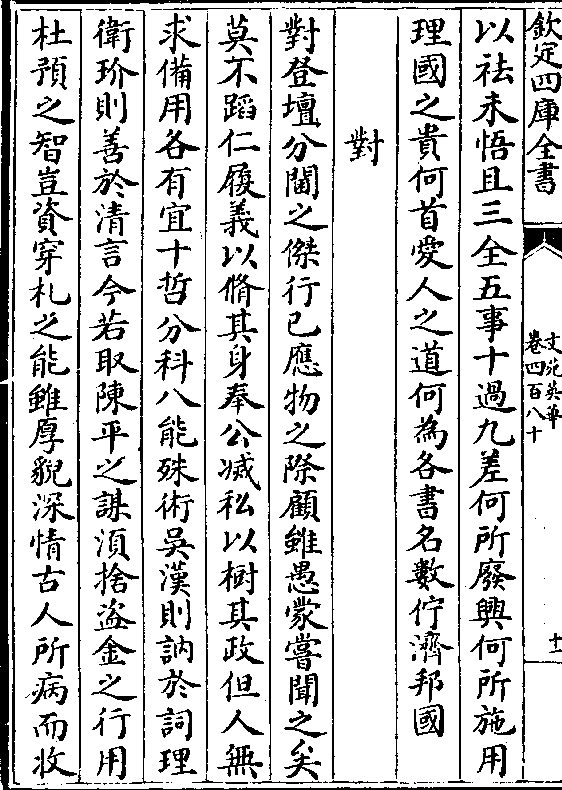 欽定四庫全書
文苑英華
卷四百八十
十一
以祛未悟且三全五事十過九差何所廢興何所施用
理國之貴何首愛人之道何為各書名數佇濟邦國
對
對登壇分閫之傑行已應物之際顧雖愚蒙嘗聞之矣
莫不蹈仁履義以脩其身奉公滅私以樹其政但人無
求備用各有宜十哲分科八能殊術吳漢則訥於詞理
衛玠則善於清言今若取陳平之謀須捨盗金之行用
杜預之智豈資穿札之能雖厚貌深情古人所病而收